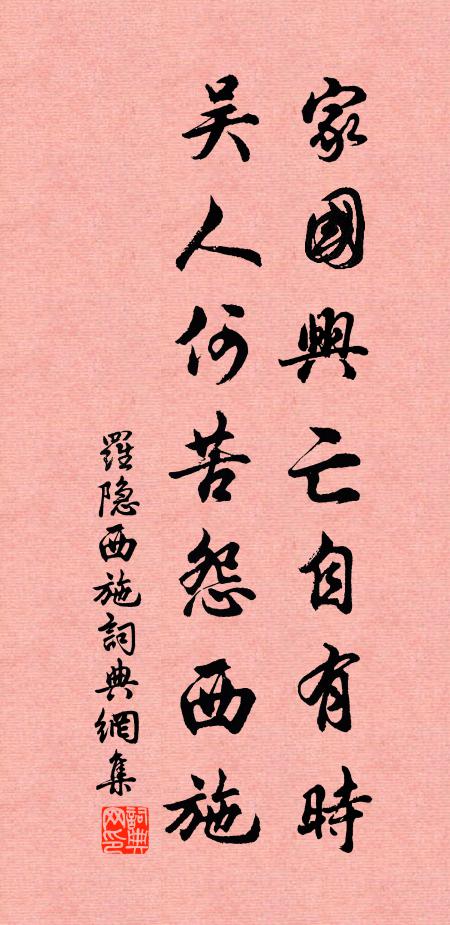 家國興亡自有時
吴人何苦怨西施
羅隐西施詞典網集
詞典网印